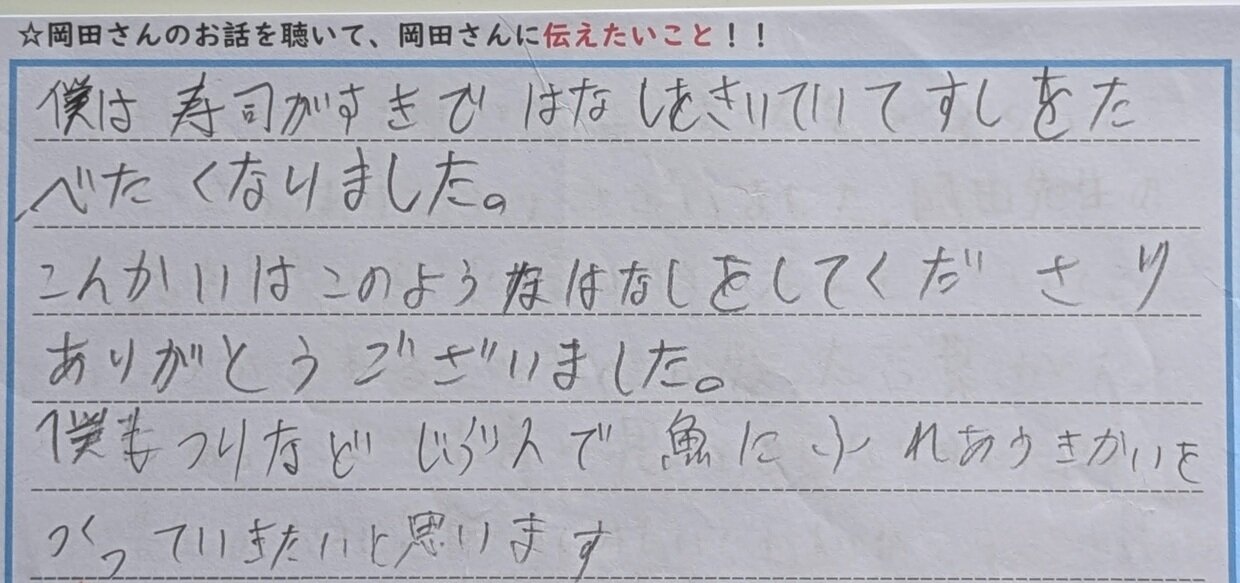 ☆岡田さんのお話を聴いて、岡田さんに伝えたいこと！！
僕は寿司がすきではなしをきいていてすしをた
べたくなりました。
こんかいはこのようなはなしをしてくださり
ありがとうございました。
僕もつりなどじぶんで魚にふれあうきかいを
つくっていきたいと思います